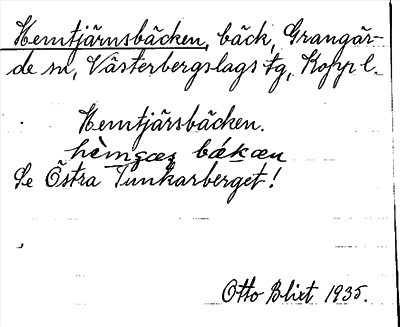 Hemtjärnsbäcken, bäck, Grangär-
de sn, Västerbergslags tg, Kopp l.
Hemtjärsbäcken.
hèmɡæʂ bákæn
Se Östra Tunkarberget!
Otto Blixt 1935.